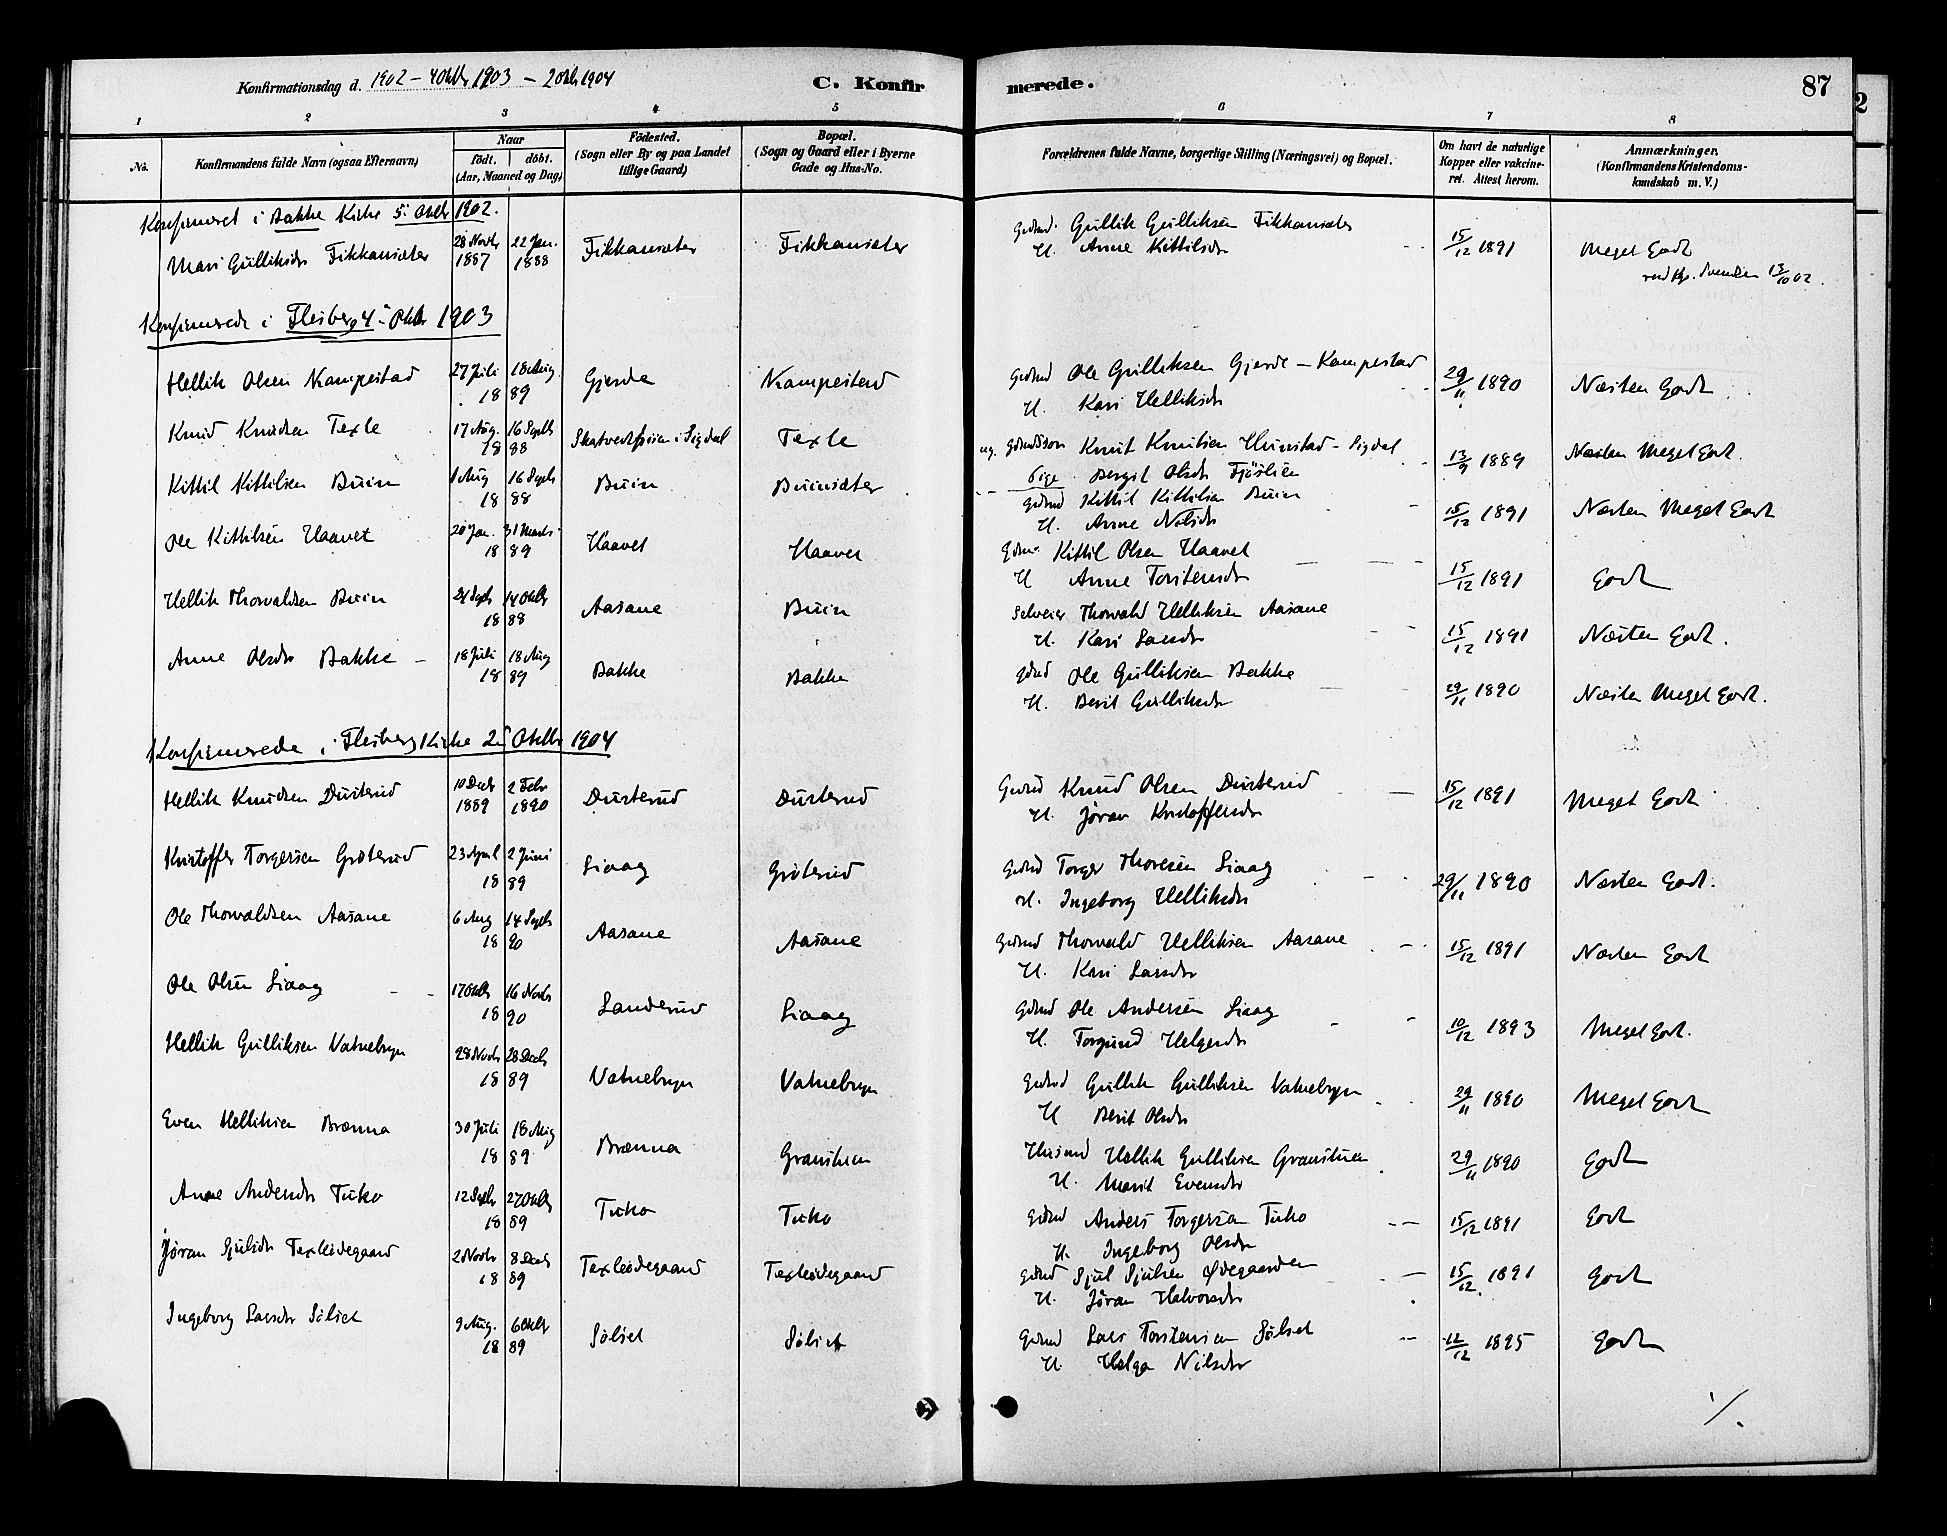 Konfirmationsdag d. 1902 – 4 Oktbr 1903 – 2 Oktbr 1904 C. Konfirmerede. 87
1 2 3 4 5 6 7 8
No. Konfirmandens fulde Navn (ogsaa Efternavn) Naar født. døbt. (Aar, Maaned og Dag) Fødested. (Sogn eller By og paa Landet tillige Gaard) Bopæl. (Sogn og Gaard eller i Byerne Gade og Hus-No. Forældrenes fulde Navne, borgerlige Stilling (Næringsvei) og Bopæl. Om havt de naturlige Kopper eller vakcineret. Attest herom. Anmærkninger. (Konfirmandens Kristendomskundskab m. V.)
Konfirmeret i Bakke Kirke 5. Oktbr 1902.
Mari Gulliksdr Fikkansæter 28 Novbr 1887 22 Jan. 1888 Fikkansæter Fikkansæter Gullik Gulliksen Fikkansæter
H. Anne Kittilsdr 15/12 1891 Meget Godt
13/10 02.
Konfirmerede i Flesberg 4 Oktbr 1903
Hellik Olsen Kampestad 27 Juli 18 Aug. 1889 Gjerde Kampestad Gdbrd Ole Gulliksen Gjerde – Kampestad
H. Kari Helliksdr 29/11 1890 Næsten Godt
Knud Knudsen Texle 17 Aug. 16 Septbr 1888 i Sigdal Texle ug. Knut Knutsen – Sigdal
Pige Bergit Olsdr 13/9 1889 Næsten Meget Godt.
Kittil Kittilsen Buin 1 Aug 16 Septb 1888 Buin Buinsæter Gdbrd Kittil Kittilsen Buin
H. Anne Nilsdr 15/12 1891 Næsten Meget Godt
Ole Kittilsen Haavet 20 Jan. 31 Marts 1889 Haavet Haavet Gdbr. Kittil Olsen Haavet
H Anne Torstensdr 15/12 1891 Godt
Hellik Thorvaldsen Buin 24 Septb 14 Oktbr 1888 Aasane Buin Selveier Thorvald Helliksen Aasane
H. Kari Larsdr 15/12 1891 Næsten Godt.
Anne Olsdr Bakke – 18 Juli 18 Aug 1889 Bakke Bakke Gdbrd Ole Gulliksen Bakke
H. Berit Gulliksdr 29/11 1890 Næsten Meget Godt.
Konfirmerede i Flesberg Kirke 2 Oktbr 1904
Hellik Knudsen Dusterud 10 Decbr 1889 2 Febr 1890 Dusterud Dusterud Gbrd Knud Olsen Dusterud
H. Jøran Kristoffersdr 15/12 1891 Meget Godt
Kristoffer Torgersen Grøterud 23 April 2 Juni 1889 Liaag Grøterud Gdbrd Torger Thoresen Liaag
H. Ingeborg Helliksdr 29/11 1890 Næsten Godt.
Ole Thorvaldsen Aasane 6 Aug 14 Septb 1890 Aasane Aasane Gdbrd Thorvald Helliksen Aasane
H. Kari Larsdr 15/12 1891 Næsten Godt
Ole Olsen Liaag 17 Oktbr 16 Novbr 1890 Landerud Liaag Gdbrd Ole Andersen Liaag
H. Torgund Helgesdr 10/12 1893 Meget Godt.
Hellik Gulliksen Vatnebryn 28 Novbr 28 Decbr 1889 Vatnebryn Vatnebryn Gdbrd Gullik Gulliksen Vatnebryn
H Berit Olsdr 29/11 1890 Meget Godt
Even Helliksen Brænna 30 Juli 18 Aug 1889 Brænna Granstuen Husmd Hellik Gulliksen Granstuen
H. Marit Evensdr 29/11 1890 Godt
Anne Andersdr Tuko 12 Septbr 27 Oktbr 1889 Tuko Tuko Gdbrd Anders Torgersen Tuko
H. Ingeborg Olsdr 15/12 1891 Godt
Jøran Sjulsdr Texleødegaard 2 Novbr 8 Decb 1889 Texleødegaard Texleødegaard Gdbrd Sjul Sjulsen Ødegaarden
H. Jøran Halvorsdr 15/12 1891 Godt
Ingeborg Larsdr Sølset 9 Aug. 6 Oktbr 1889 Sølset Sølset Gdbrd Lars Torstensen Sølset
H. Helga Nilsdr 12/12 1895 Godt